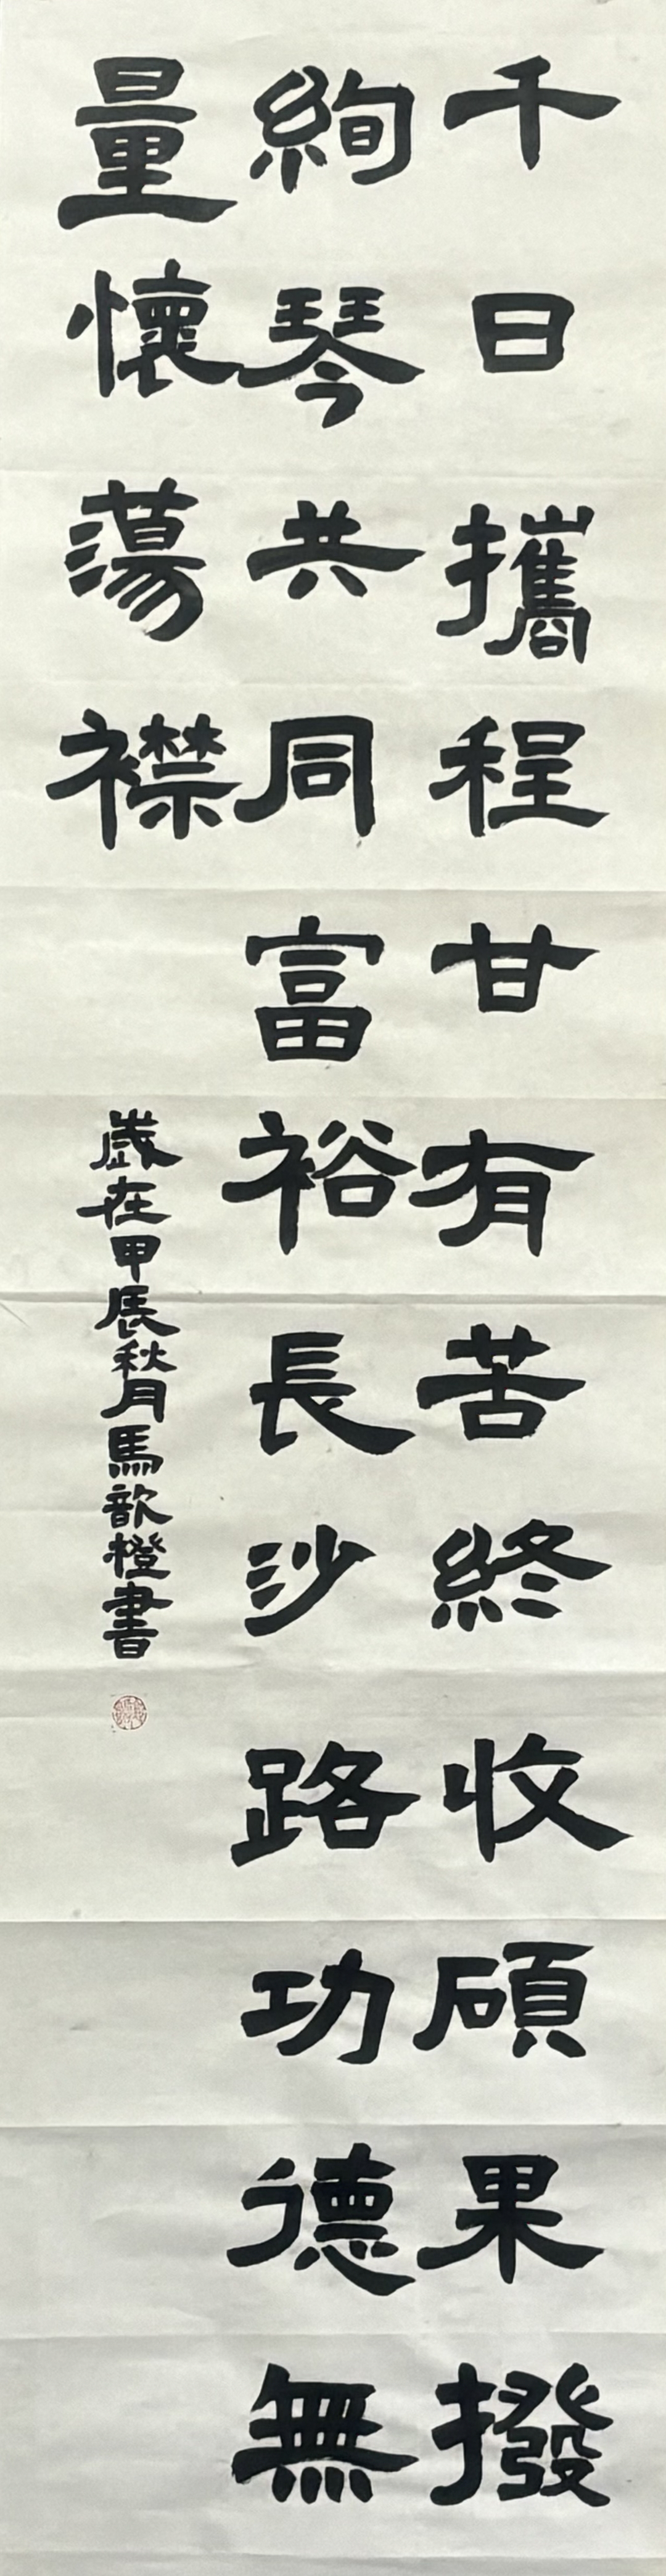 千日攜程甘有苦終收碩果撥
絢琴共同富裕長沙路功德無
量懷蕩襟
歲在甲辰秋月馬歆橙書